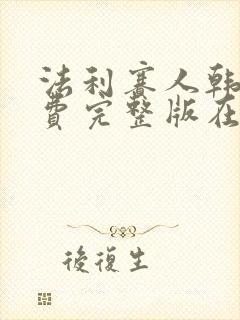 法利賽人韩
費完整版在
後復生